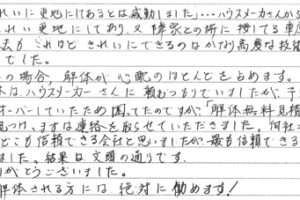 れいに更地にけあるとは感動しました…ハウスメーカさんから
れい更地にてあり、又隣家との堺に接してる車
去もこれほどきれいにできるのはかなり高度な技術
でした。
の場合、解体が心配のほとんどをしめます。
はハウスメーカーさんに頼むつもりでいましたが、予
オーバーしていたため困ってたのですが、「解体無料見積
見つけ、まずは連絡を取らせていただきました。何社
どこも信頼できる会社と思いましたが最も信頼できる
ました。結果は文頭の通りです。
がとうございました。
解体される方には絶対に勧めます!